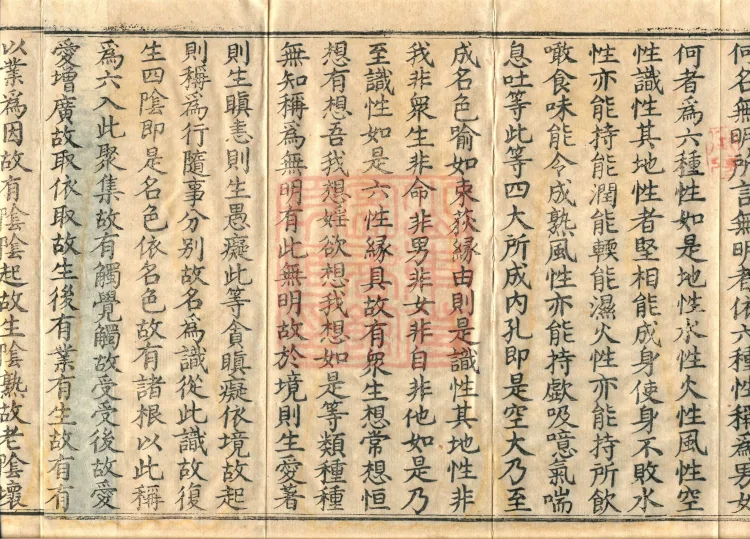 何名無明所言無明者依六種性稱爲男女
何者爲六種性如是地性水性火性風性空
性識性其地性者堅相能成身使身不敗水
性亦能持能潤能輭能濕火性亦能持所飲
噉食味能令成熟風性亦能持歔吸噫氣喘
息吐等此等四大所成內孔即是空大乃至
成名色喻如束荻緣由則是識性其地性非
我非衆生非命非男非女非自非他如是乃
至識性如是六性緣具故有衆生想常想恒
想有想吾我想婬欲想我想如是等類種種
無知稱爲無明有此無明故於境則生愛著
則生瞋恚則生愚癡此等貪瞋癡依境故起
則稱爲行隨事分別故名爲識從此識故復
生四陰即是名色依名色故有諸根以此稱
爲六入此聚集故有觸覺觸故受受後故愛
愛增廣故取依取故生後有業有生故有有
以業爲因故有陰陰起故生陰熟故老陰壞